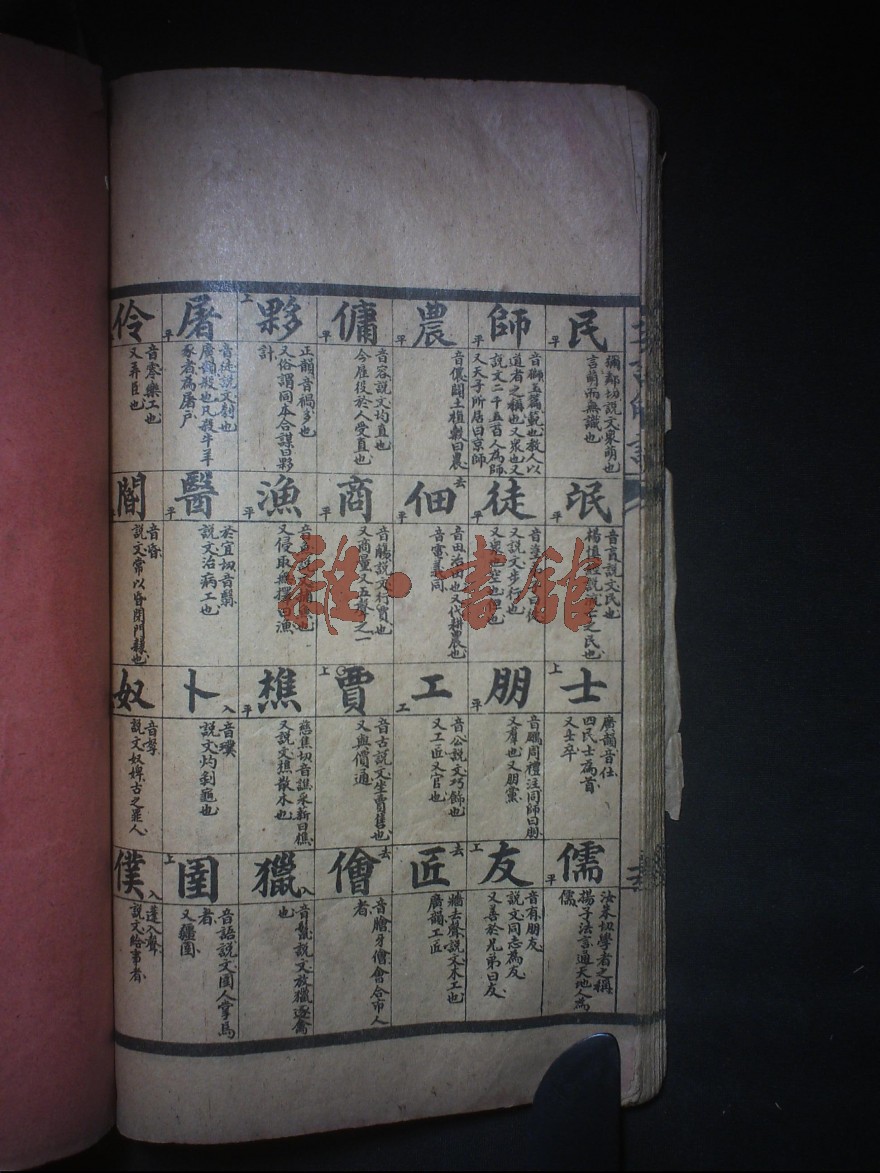 民
平
彌鄰切說文衆萌也
言萌而無識也
氓
平
音盲說文民也
士
上
廣韻音仕
四民士為首
又士卒
儒
平
汝朱切學者之稱
揚子法言通天地人為
儒
師
平
音獅玉篇範也教人以
道者之稱也又衆也又
說文二千五百人為師
又天子所居曰京師
徒
平
又說文步行也
朋
平
音鵬周禮注同師曰朋
又羣也又朋黨
友
上
音有朋友
說文同志為友
又善於兄弟曰友
農
平
音儂闢土植穀曰農
佃
平
去
音田治田也又代耕農也
音電義同
工
工
音公說文巧飾也
又工匠又官也
匠
去
牆去聲說文木工也
廣韻工匠
傭
平
音容說文均直也
今雇役於人受直也
商
平
音觴說文行賈也
又商量又五聲之一
賈
上
音古說文坐賣售也
又與價通
儈
去
音膾牙儈會合市人
者
夥
上
正韻音禍多也
又俗謂同本合謀曰夥
計
漁
平
又侵取無擇曰漁
樵
平
慈焦切音譙采薪曰樵
又說文樵散木也
獵
入
音鬣說文放獵逐禽
也
屠
平
音徒說文刳也
廣韻殺也凡殺牛羊
豕者為屠戶
醫
平
於宜切音翳
說文治病工也
卜
入
音璞
說文灼剝龜也
圉
上
音語說文圉人掌馬
者
又疆圉
伶
音零樂工也
又弄臣也
閽
音昏
說文常以昏閉門隸也
奴
音孥
說文奴婢古之罪人
僕
入
蓬入聲
說文給事者
雜·書館